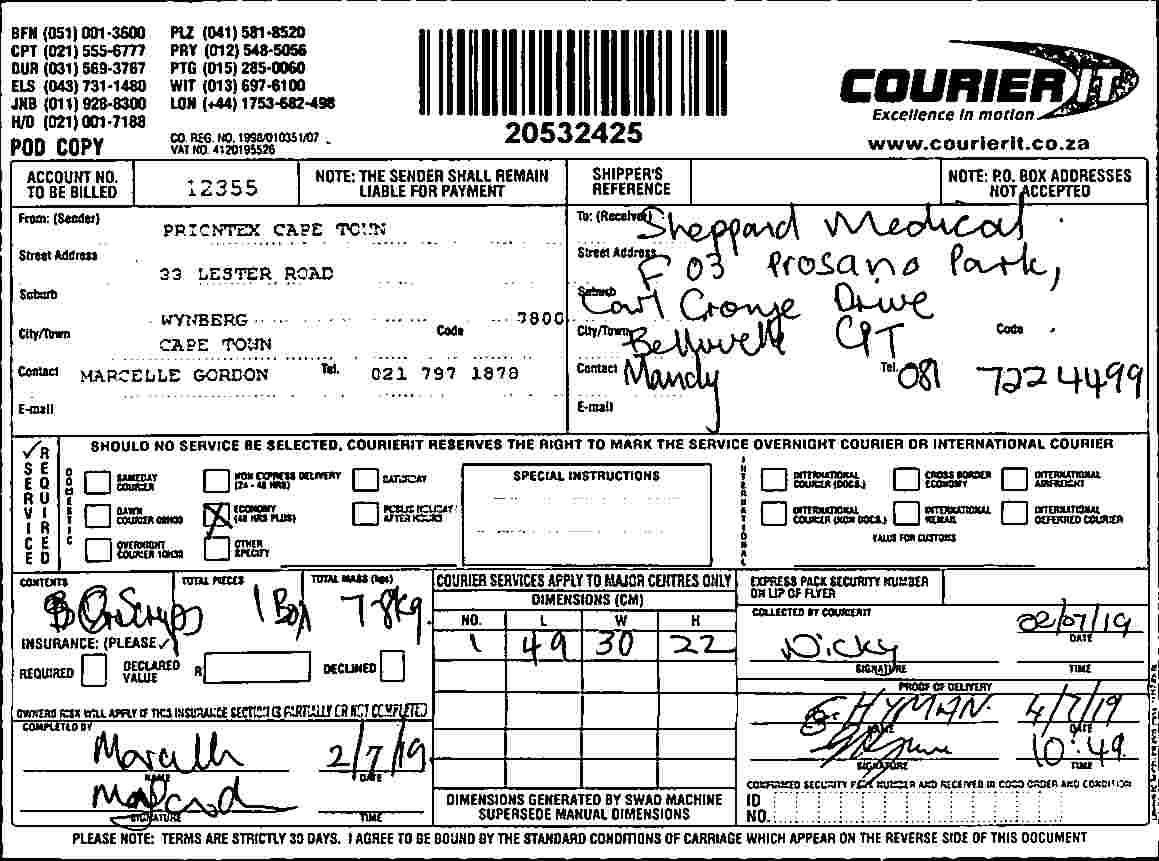 BFN (051) 001-3600 PLZ (041) 581-8520
CPT (021) 555-6777 PRY (012) 548-5056
DUR (031) 569-3767 PTG (015) 285-0060
ELS (043) 731-1480 WIT (013) 697-6100
JNB (011) 928-8300 LON (+44) 1753-682-498
H/O (021) 001-7188
POD COPY
CO. REG. NO. 1998/010351/07
VAT NO. 4120195526
20532425
COURIER IT
Excellence in motion
www.courierit.co.za
ACCOUNT NO. TO BE BILLED 12355
NOTE: THE SENDER SHALL REMAIN LIABLE FOR PAYMENT
SHIPPER'S REFERENCE
NOTE: P.O. BOX ADDRESSES NOT ACCEPTED
From: (Sender) PRIONTEX CAPE TOWN
Street Address 33 LESTER ROAD
Suburb WYNBERG
City/Town CAPE TOWN Code 7800
Contact MARCELLE GORDON Tel. 021 797 1878
E-mail
To: (Receiver) Sheppard Medical
Street Address F 03 Prosano Park,
Suburb Carl Cronje Drive
City/Town Bellville CPT Code
Contact Mandy Tel. 081 722 4499
E-mail
SERVICE REQUIRED
SHOULD NO SERVICE BE SELECTED, COURIERIT RESERVES THE RIGHT TO MARK THE SERVICE OVERNIGHT COURIER OR INTERNATIONAL COURIER
DOMESTIC
SAMEDAY COURIER
NON EXPRESS DELIVERY (24 - 48 HRS)
SATURDAY
DAWN COURIER 08H00
ECONOMY (48 HRS PLUS)
PUBLIC HOLIDAY/ AFTER HOURS
OVERNIGHT COURIER 10H30
OTHER SPECIFY
SPECIAL INSTRUCTIONS
INTERNATIONAL
INTERNATIONAL COURIER (DOCS.)
CROSS BORDER ECONOMY
INTERNATIONAL AIRFREIGHT
INTERNATIONAL COURIER (NON DOCS.)
INTERNATIONAL REMAIL
INTERNATIONAL DEFERRED COURIER
VALUE FOR CUSTOMS
CONTENTS
TOTAL PIECES 1 Box
TOTAL MASS (kgs) 7.8kg
INSURANCE: (PLEASE ✓)
REQUIRED DECLARED VALUE R DECLINED
OWNERS RISK WILL APPLY IF THIS INSURANCE SECTION IS PARTIALLY OR NOT COMPLETED
COMPLETED BY
NAME 2/7/19 DATE
SIGNATURE TIME
COURIER SERVICES APPLY TO MAJOR CENTRES ONLY
DIMENSIONS (CM)
NO. L W H
1 49 30 22
DIMENSIONS GENERATED BY SWAD MACHINE SUPERSEDE MANUAL DIMENSIONS
EXPRESS PACK SECURITY NUMBER ON LIP OF FLYER
COLLECTED BY COURIERIT
Nicky 02/07/19
SIGNATURE DATE
TIME
PROOF OF DELIVERY
HYMAN 4/7/19
NAME DATE
10:49
SIGNATURE TIME
CONFIRMED SECURITY PACK NUMBER AND RECEIVED IN GOOD ORDER AND CONDITION
ID NO.
PLEASE NOTE: TERMS ARE STRICTLY 30 DAYS. I AGREE TO BE BOUND BY THE STANDARD CONDITIONS OF CARRIAGE WHICH APPEAR ON THE REVERSE SIDE OF THIS DOCUMENT